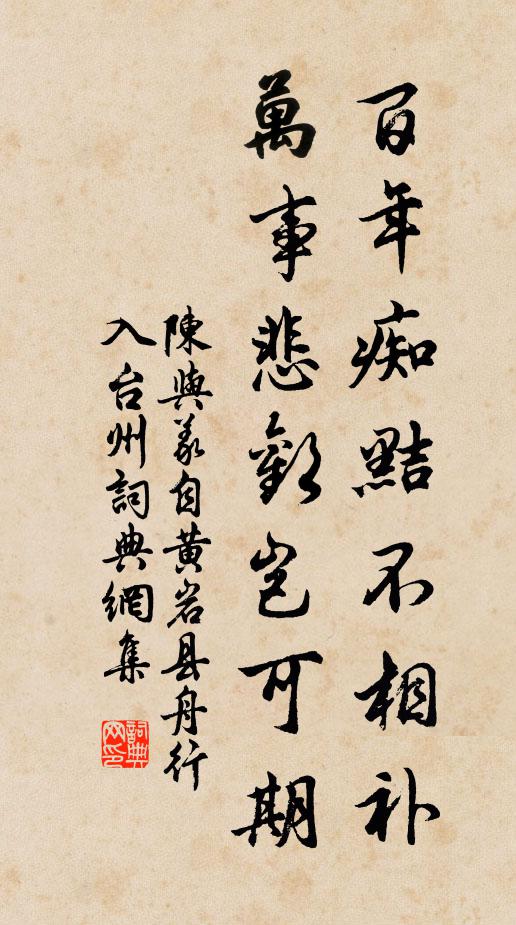 百年痴黠不相补
萬事悲歡岂可期
陳與義自黄岩县舟行
入台州詞典網集
詞典网印